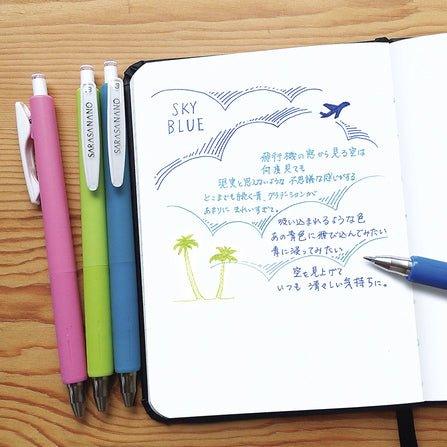 SARASA NANO
SARASA NANO
SKY
BLUE
飛行機の窓から見る空は
何度見ても
現実と思えないような 不思議な感じがする
どこまでも続く青、グラデーションが
あまりに きれいすぎて。
吸い込まれるような色
あの青色に飛び込んでみたい
青に浸ってみたい
空を見上げて
いつも 清々しい気持ちに。